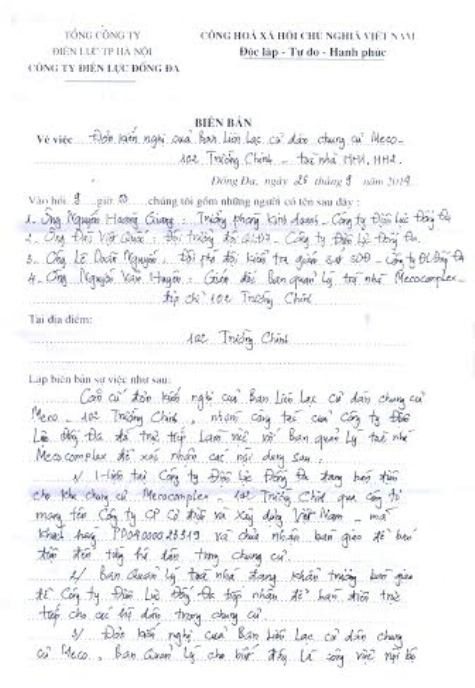 TỔNG CÔNG TY
ĐIỆN LỰC TP HÀ NỘI
CÔNG TY ĐIỆN LỰC ĐỐNG ĐA
CỘNG HOÀ XÃ HỘI CHỦ NGHĨA VIỆT NAM
Độc lập - Tự do - Hạnh phúc
BIÊN BẢN
Về việc Đơn kiến nghị của Ban Liên Lạc cư dân chung cư Meco-
102 Trường Chinh - toà nhà HH1, HH2.
Đống Đa, ngày 25 tháng 9 năm 2014
Vào hồi 9 giờ chúng tôi gồm những người có tên sau đây :
1- Ông Nguyễn Hoàng Quang : Trưởng phòng kinh doanh - Công ty Điện Lực Đống Đa
2- Ông Đội trưởng đội - Công ty Điện Lực Đống Đa.
3- Ông Lê Doãn Nguyên : Đội phó đội kiểm tra giám sát - Công ty ĐL Đống Đa
4- Ông Nguyễn Văn : Giám đốc Ban quản Lý toà nhà Mecocomplex-
địa chỉ 102 Trường Chinh
Tại địa điểm:
102 Trường Chinh
Lập biên bản sự việc như sau:
Căn cứ đơn kiến nghị của Ban Liên Lạc cư dân chung cư
Meco - 102 Trường Chinh, nhóm công tác của Công ty Điện
Lực Đống Đa đã trực tiếp Làm việc với Ban quản Lý toà nhà
Mecocomplex để xác nhận các nội dung sau:
1/ Hiện tại Công ty Điện Lực Đống Đa đang bán điện
cho khu chung cư Mecocomplex - 102 Trường Chinh qua công tơ
mang tên Công ty CP Cơ điện và Xây dựng Việt Nam - mã
khách hàng PD0400025319 và chưa nhận bàn giao để bán
điện đến từng hộ dân trong chung cư.
2/ Ban Quản Lý toà nhà đang khẩn trương bàn giao
để Công ty Điện Lực Đống Đa tiếp nhận để bán điện trực
tiếp cho các hộ dân trong chung cư.
3/ Đơn kiến nghị của Ban Liên Lạc cư dân chung
cư Meco, Ban Quản Lý cho biết đây Là công việc nội bộ